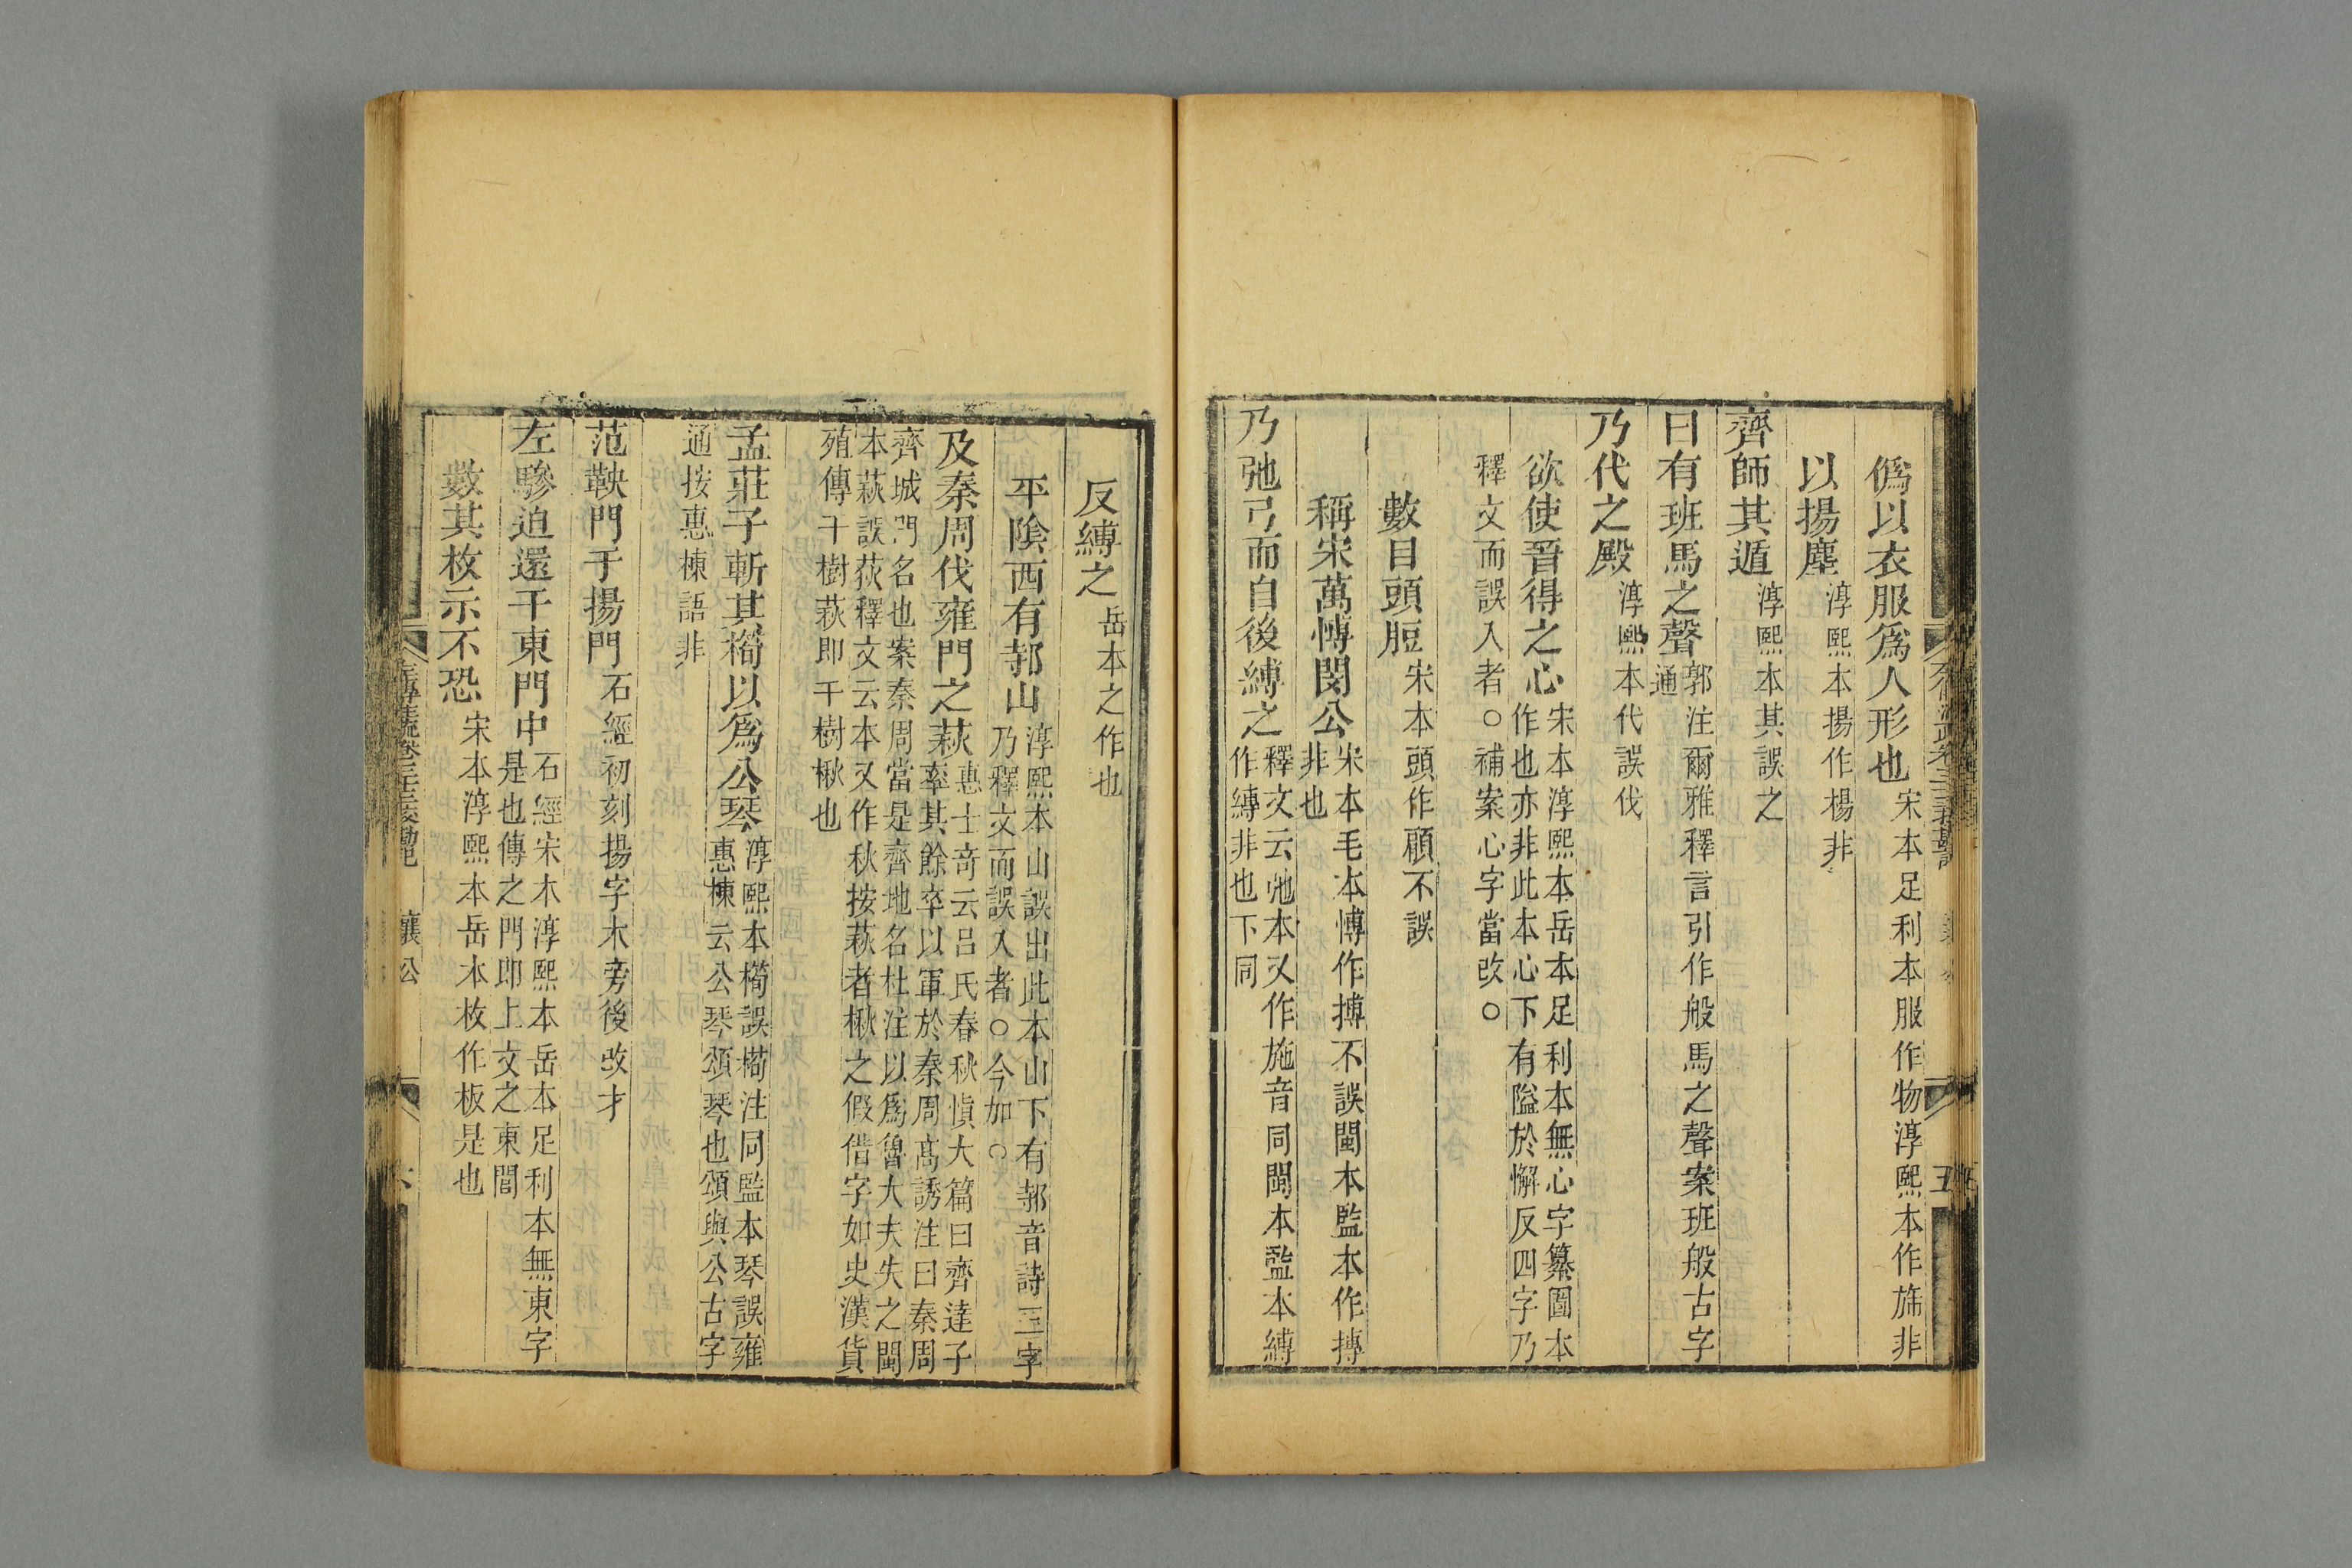 僞以衣服爲人形也 宋本足利本服作物淳熙本作旆非
以揚塵 淳熙本揚作楊非
齊師其遁 淳熙本其誤之
曰有班馬之聲 郭注爾雅釋言引作般馬之聲案班般古字
通
乃代之殿 淳熙本代誤伐
欲使晉得之心 宋本淳熙本岳本足利本無心字纂圖本
作也亦非此本心下有隘於懈反四字乃
釋文而誤入者○補案心字當改○
數目頭脰 宋本頭作頋不誤
稱宋萬慱閔公 宋本毛本慱作搏不誤閩本監本作摶
非也
乃弛弓而自後縛之 釋文云弛本又作施音同閩本監本縛
作縳非也下同
反縛之 岳本之作也
平陰西有邿山 淳熙本山誤出此本山下有邿音詩三字
乃釋文而誤入者○今加○
及秦周伐雍門之萩 惠士奇云呂氏春秋慎大篇曰齊達子
率其餘卒以軍於秦周高誘注曰秦周
齊城門名也案秦周當是齊地名杜注以爲魯大夫失之閩
本萩誤荻釋文云本又作秋按萩者楸之假借字如史漢貨
殖傳千樹萩即千樹楸也
孟莊子斬其橁以爲公琴 淳熙本橁誤櫤注同監本琴誤雍
惠棟云公琴頌琴也頌與公古字
通按惠棟語非
范鞅門于揚門 石經初刻揚字木旁後改才
左驂迫還于東門中 石經宋本淳熙本岳本足利本無東字
是也傳之門即上文之東閭
數其枚示不恐 宋本淳熙本岳本枚作板是也
襄公